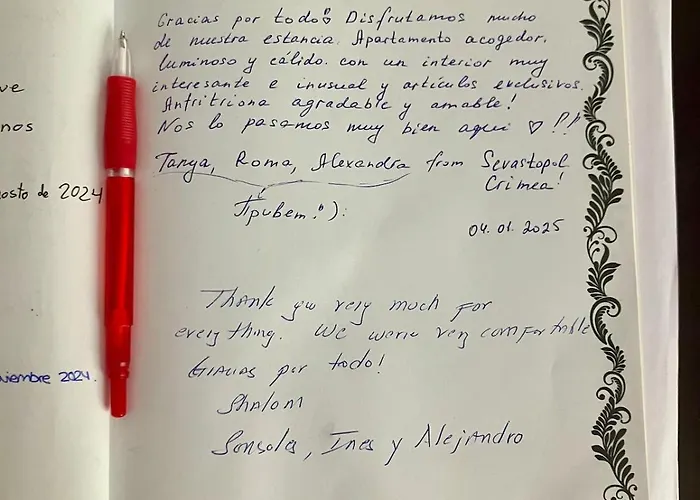 ve
nos
osto de 2024
viembre 2024.
Gracias por todo! Disfrutamos mucho
de nuestra estancia. Apartamento acogedor,
luminoso y cálido. con un interior muy
interesante e inusual y artículos exclusivos.
Anfritriona agradable y amable!
Nos lo pasamos muy bien aquí ♡!!
Tanya, Roma, Alexandra from Sevastopol
Crimea!
Привет!"):
04. 01. 2025
Thank you very much for
everything. We were very comfortable
Gracias por todo!
Shalom
Sonsoles, Ines y Alejandro